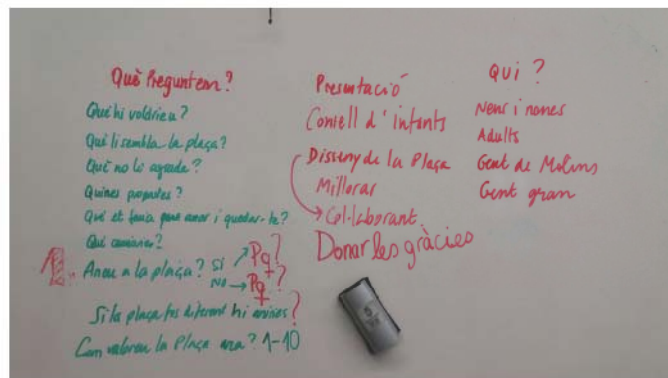 Què Preguntem?
Què hi voldrieu?
Què li sembla la plaça?
Què no li agrada?
Quines propostes?
Què et faria ganes anar i quedar-te?
Què canviaries?
1. Aneu a la plaça? SI → Pq?
NO → Pq?
Si la plaça fos diferent hi aniries?
Com valoreu la Plaça ara? 1-10
Presentació
Consell d'infants
Disseny de la Plaça
Millorar
Col·laborant
Donar les gràcies
QUI?
Nens i nenes
Adults
Gent de Molins
Gent gran